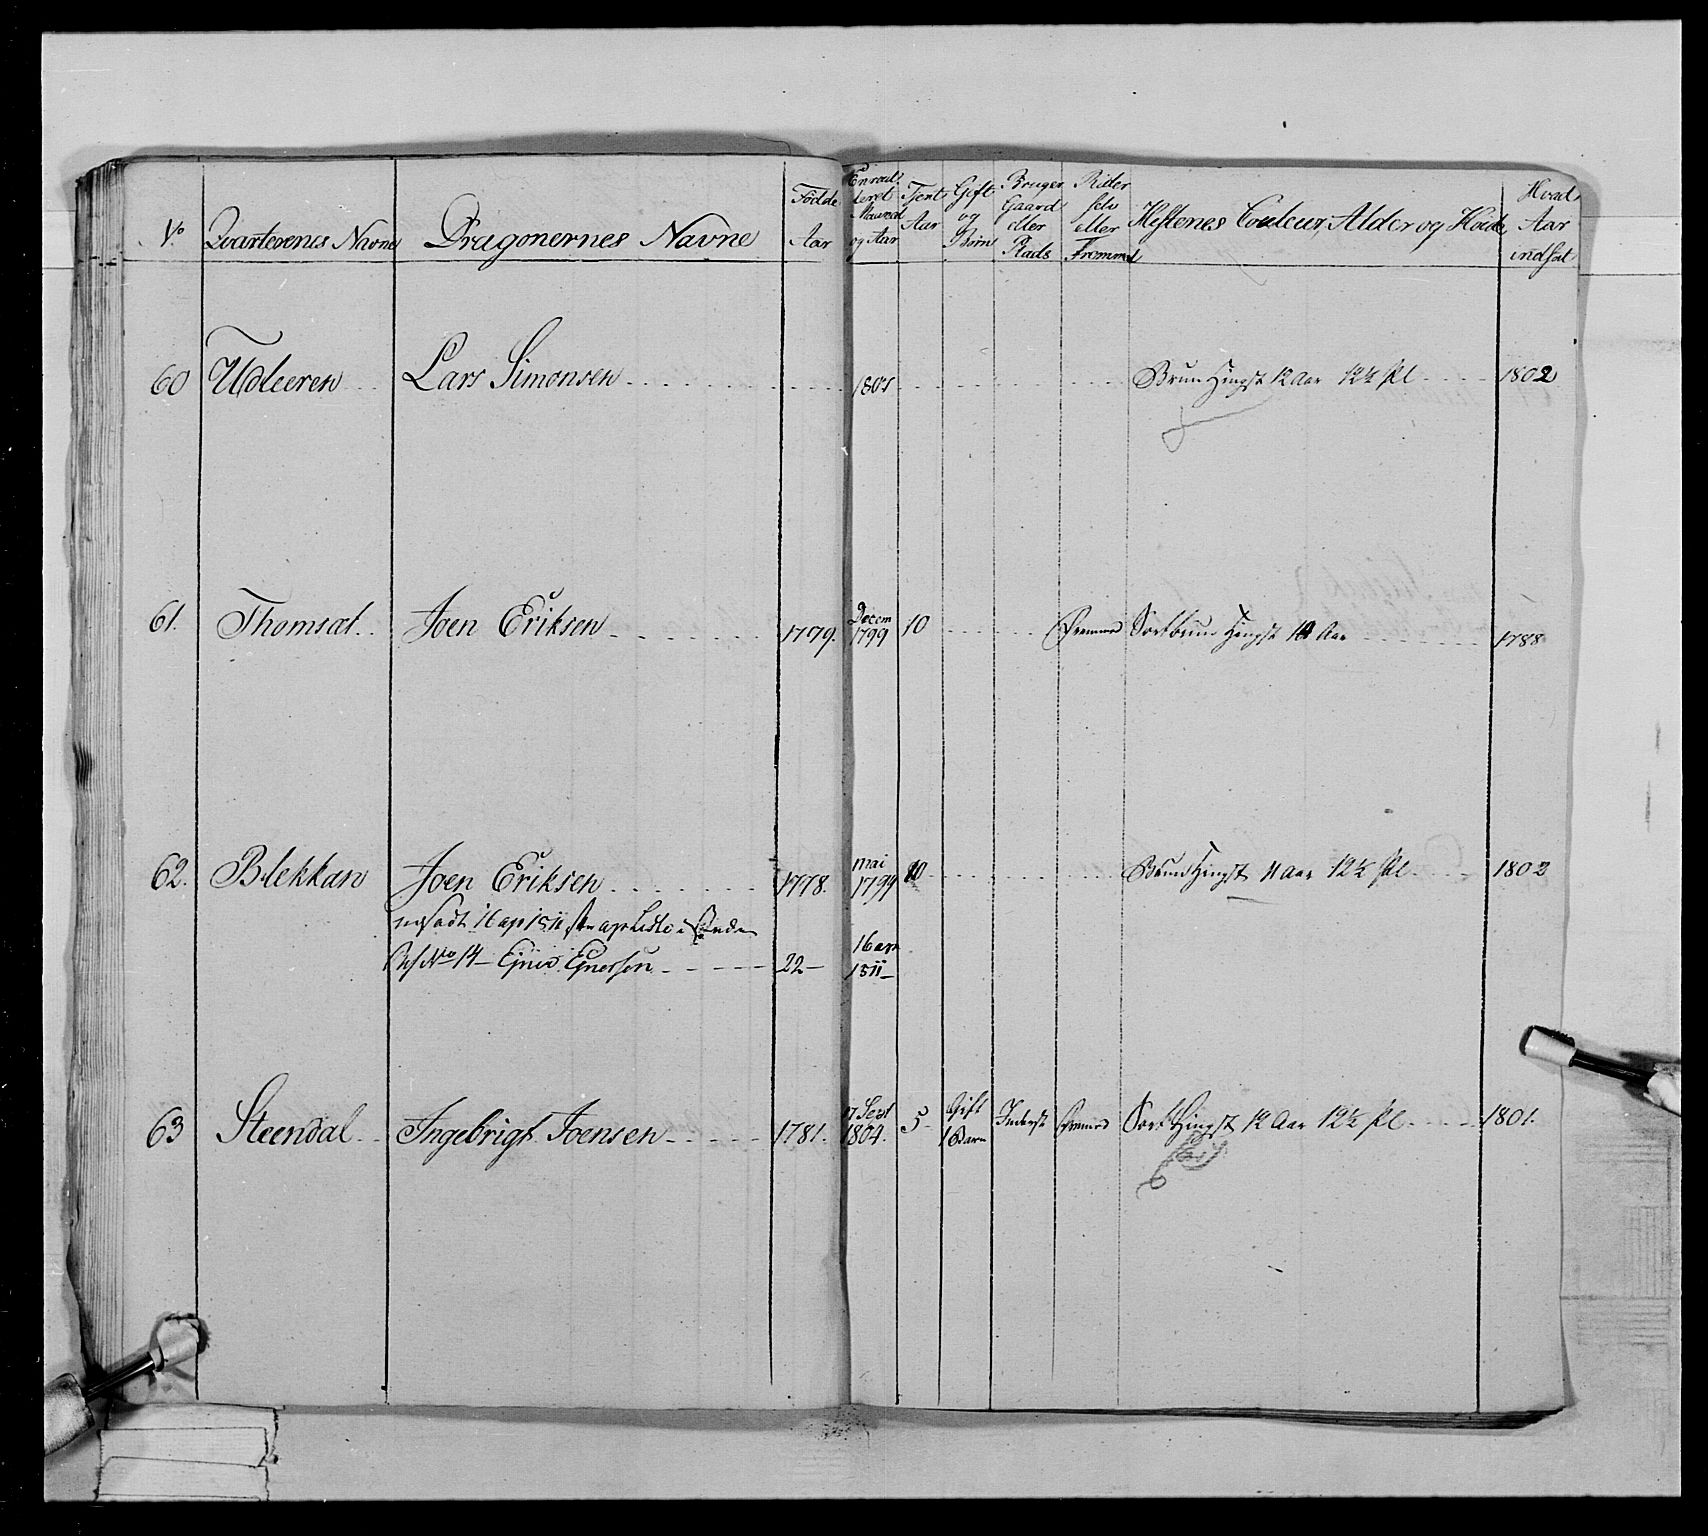 No Qvarterenes Navne Dragonernes Navne Födde Aar Enroulleret Maaned og Aar Tjent Aar Gift og Börn Bruger Gaard eller Plads Rider selv eller Fremmed Hestenes Couleur, Alder og Höide Hvad Aar indsat
60 Udleeren Lars Simonsen 1801 Brun Hingst 12 Aar 12½ 1802
61. Thomsæt Joen Eriksen 1779. Decem 1799 10 Fremmed Sortbrun Hingst Aar 1788
62. Blekkan Joen Eriksen 1778. mai 1799 10 Brun Hingst 11 Aar 12½ 1802
16 ap 1811
No 14 22 16 apr 1811
63 Steendal Ingebrigt Joensen 1781. 17 Sept 1804. 5 Gift 1 Barn Inderst Fremmed Sort Hingst 12 Aar 12½ 1801.